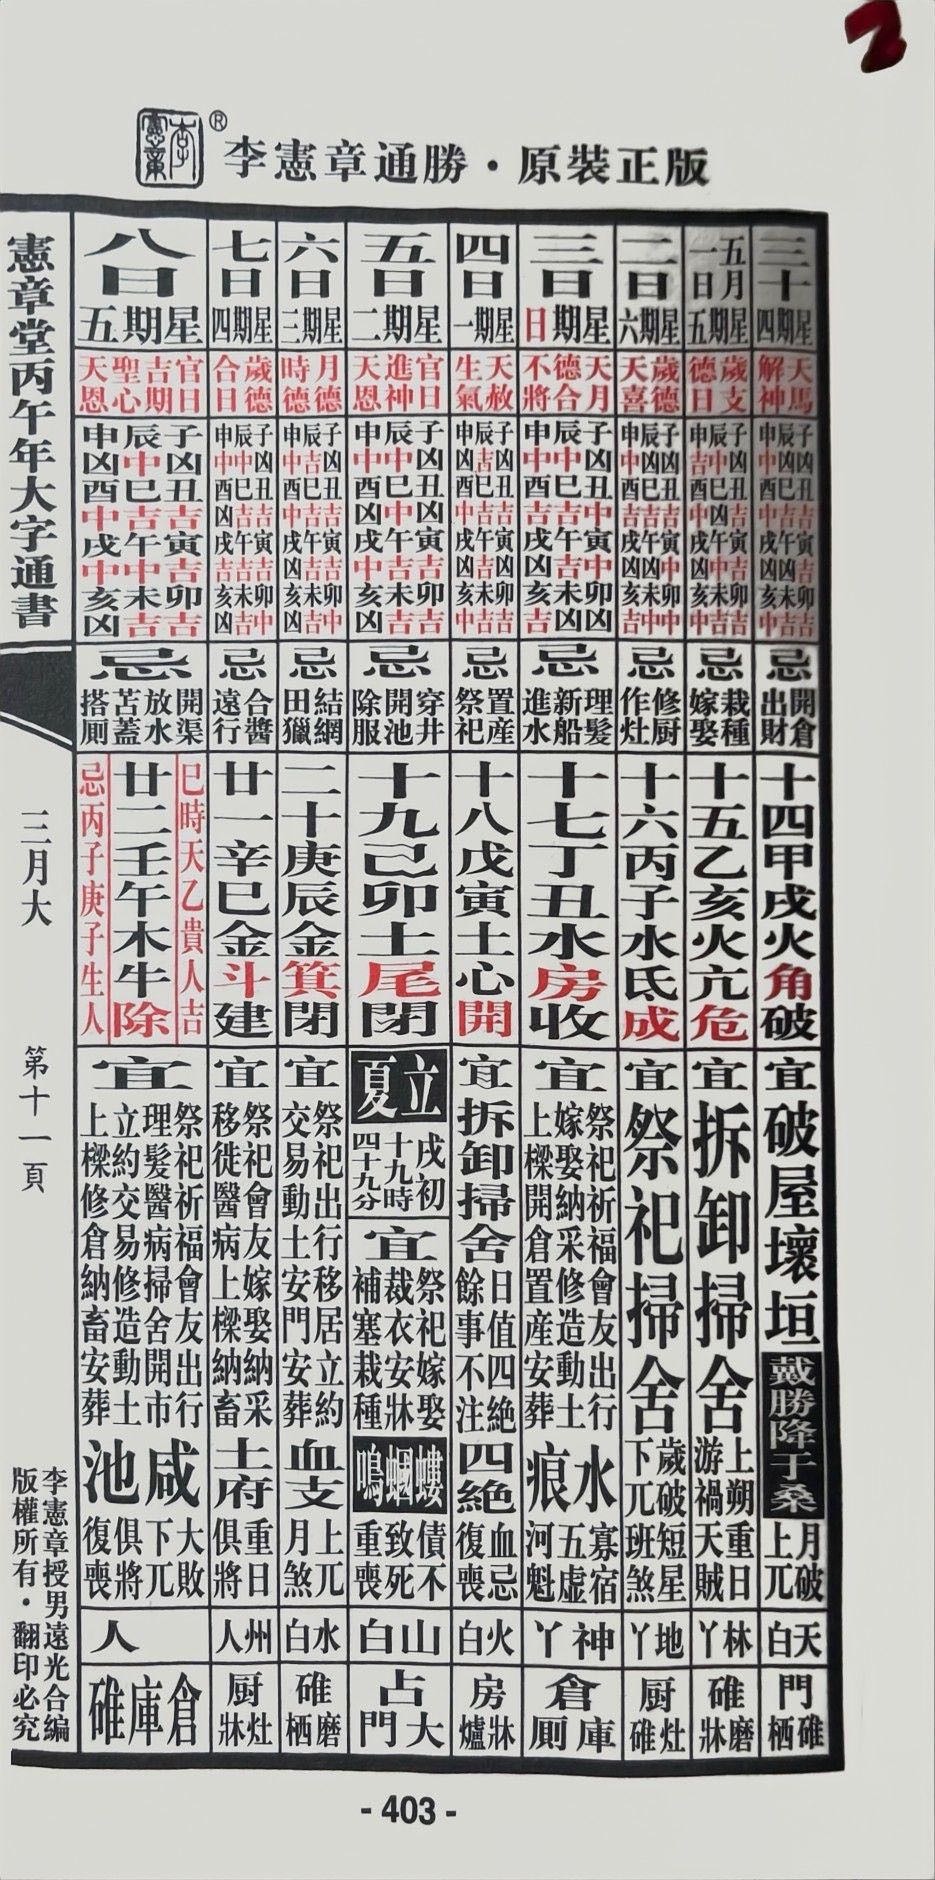 李憲章
®
李憲章通勝・原裝正版
三十
星期四
天馬
解神
子凶丑吉寅吉卯吉
辰凶巳吉午凶未吉
申中酉中戌凶亥中
忌
開倉
出財
十四甲戌火角破
宜
破屋壞垣
戴勝降于桑
月破
上兀
天白
碓門栖
五月
一日
星期五
歲支
德日
子凶丑吉寅吉卯吉
辰中巳凶午中未吉
申吉酉中戌凶亥中
忌
栽種
嫁娶
十五乙亥火亢危
宜
拆卸掃舍
上朔重日
游禍天賊
林丫
碓磨牀
二日
星期六
歲德
天喜
子凶丑吉寅中卯中
辰凶巳吉午凶未中
申中酉吉戌凶亥吉
忌
修厨
作灶
十六丙子水氐成
宜
祭祀掃舍
歲破短星
下兀班煞
地丫
厨灶碓
三日
星期日
天月
德合
不將
子凶丑中寅中卯凶
辰中巳吉午吉未凶
申中酉吉戌凶亥吉
忌
理髮
新船
進水
十七丁丑水房收
宜
祭祀祈福會友出行
嫁娶納采修造動土
上樑開倉置産安葬
水痕
寡宿
五虛
河魁
神丫
倉庫厠
四日
星期一
天赦
生氣
子凶丑吉寅凶卯吉
辰吉巳吉午吉未吉
申凶酉吉戌凶亥中
忌
置産
祭祀
十八戊寅土心開
宜
拆卸掃舍
日值四絶
餘事不注
四絶
血忌
復喪
火白
房牀爐
五日
星期二
官日
進神
天恩
子凶丑凶寅吉卯吉
辰中巳中午吉未吉
申中酉凶戌中亥凶
忌
穿井
開池
除服
十九己卯土尾閉
立夏
戌初
十九時
四十九分
宜
祭祀嫁娶
裁衣安牀
補塞栽種
螻蟈鳴
債不
致死
重喪
山白
占大門
六日
星期三
月德
時德
子凶丑吉寅吉卯中
辰吉巳吉午吉未吉
申中酉中戌凶亥凶
忌
結網
田獵
二十庚辰金箕閉
宜
祭祀出行移居立約
交易動土安門安葬
血支
上兀
月煞
水白
碓磨栖
七日
星期四
歲德
合日
子凶丑吉寅吉卯中
辰中巳吉午吉未吉
申中酉凶戌吉亥凶
忌
合醬
遠行
廿一辛巳金斗建
宜
祭祀會友嫁娶納采
移徙醫病上樑納畜
土府
重日
俱將
州人
厨灶牀
八日
星期五
官日
吉期
聖心
天恩
子凶丑吉寅吉卯吉
辰中巳吉午中未吉
申凶酉中戌中亥凶
忌
開渠
放水
苫蓋
搭厠
巳時天乙貴人吉
廿二壬午木牛除
忌丙子庚子生人
宜
祭祀祈福會友出行
理髮醫病掃舍開市
立約交易修造動土
上樑修倉納畜安葬
咸池
大敗
下兀
俱將
復喪
人
倉庫碓
憲章堂丙午年大字通書
三月大
第十一頁
李憲章授男遠光合編
版權所有・翻印必究
- 403 -
2